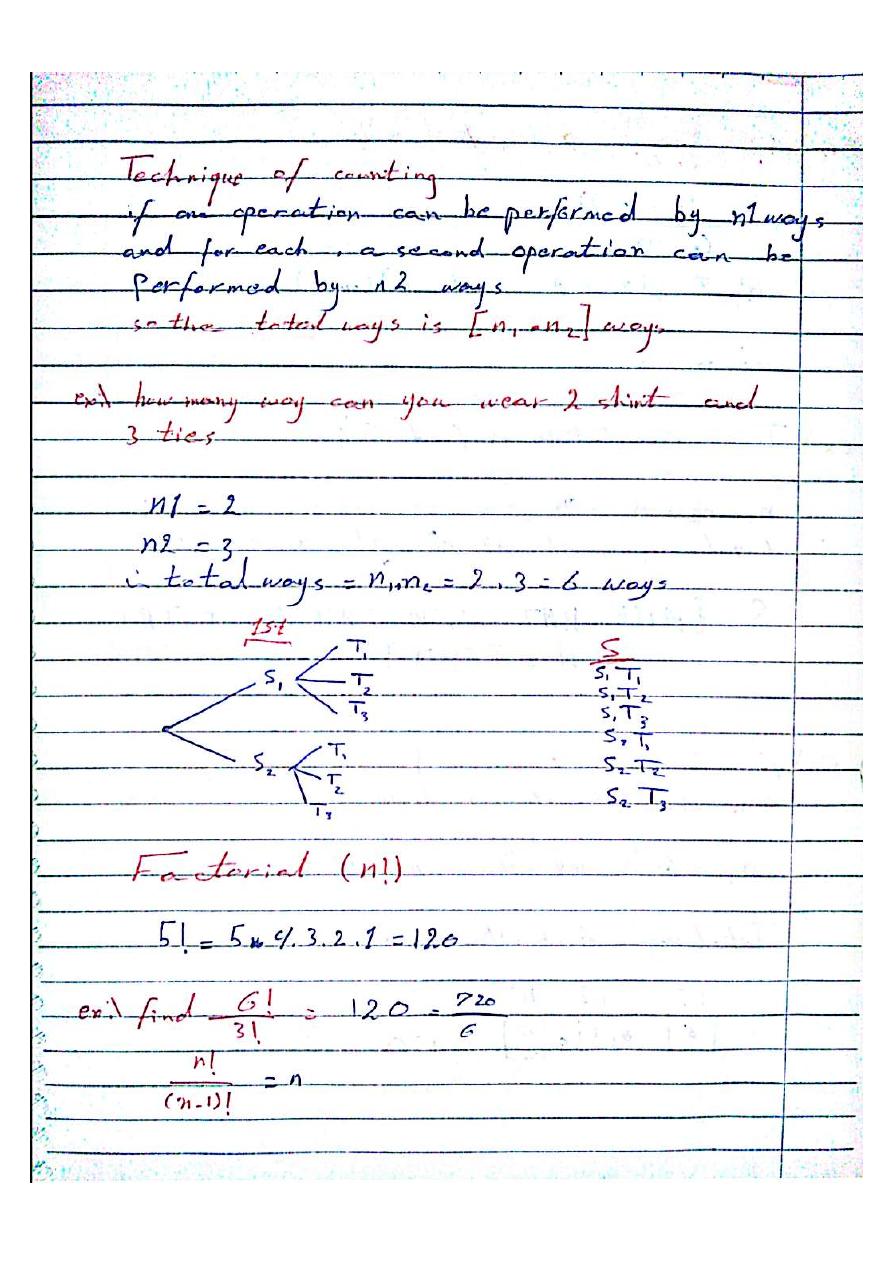 Technique of counting
if one operation can be performed by n1 ways
and for each, a second operation can be
performed by n2 ways
so the total ways is [n₁ • n₂] ways
ex:\ how many way can you wear 2 shirt and
3 ties
n1 = 2
n2 = 3
∴ total ways = n₁.n₂ = 2 . 3 = 6 ways
1st
S₁ T₁ T₂ T₃
S₂ T₁ T₂ T₃
S
S₁ T₁
S₁ T₂
S₁ T₃
S₂ T₁
S₂ T₂
S₂ T₃
Factorial (n!)
5! = 5 . 4 . 3 . 2 . 1 = 120
ex:\ find 6!/3! = 120 = 720/6
n!/(n-1)! = n